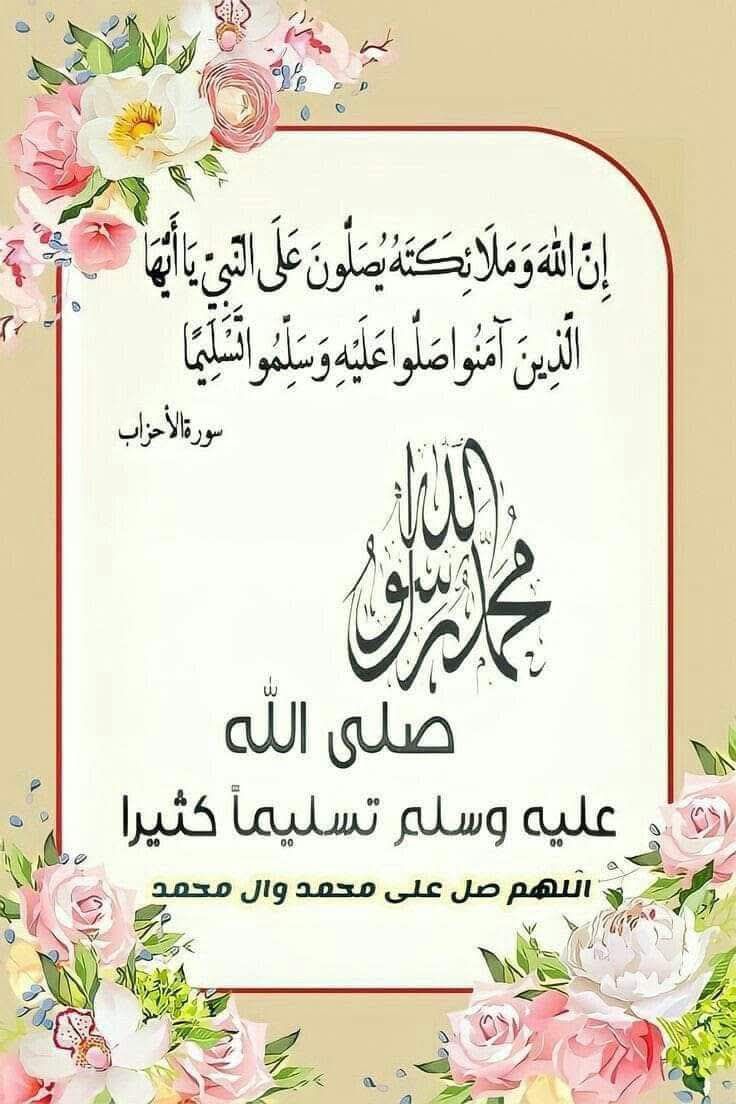 إِنَّ اللَّهَ وَمَلَائِكَتَهُ يُصَلُّونَ عَلَى النَّبِيِّ يَا أَيُّهَا
الَّذِينَ آمَنُوا صَلُّوا عَلَيْهِ وَسَلِّمُوا تَسْلِيمًا
سورة الأحزاب
محمد رسول الله
صلى الله
عليه وسلم تسليماً كثيرا
اللهم صل على محمد وال محمد